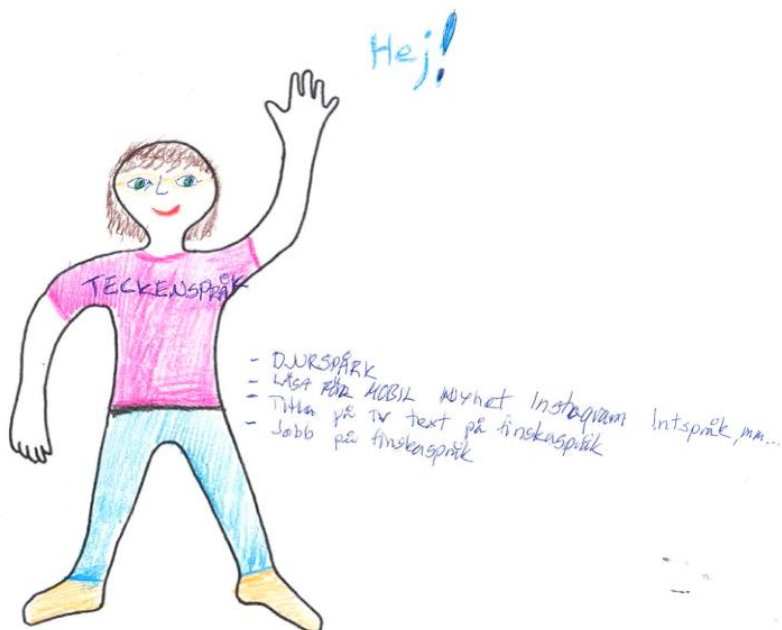 Hej!
TECKENSPRÅK
- DJURSPÅRK
- LÄSA FÖR MOBIL nyhet Instagram Intspråk, mm...
- Titta på TV text på finskaspråk
- Jobb på finskaspråk